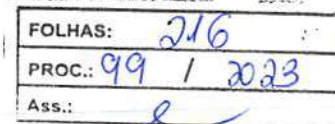 FOLHAS: 216
PROC.: 99 / 2023
Ass.: